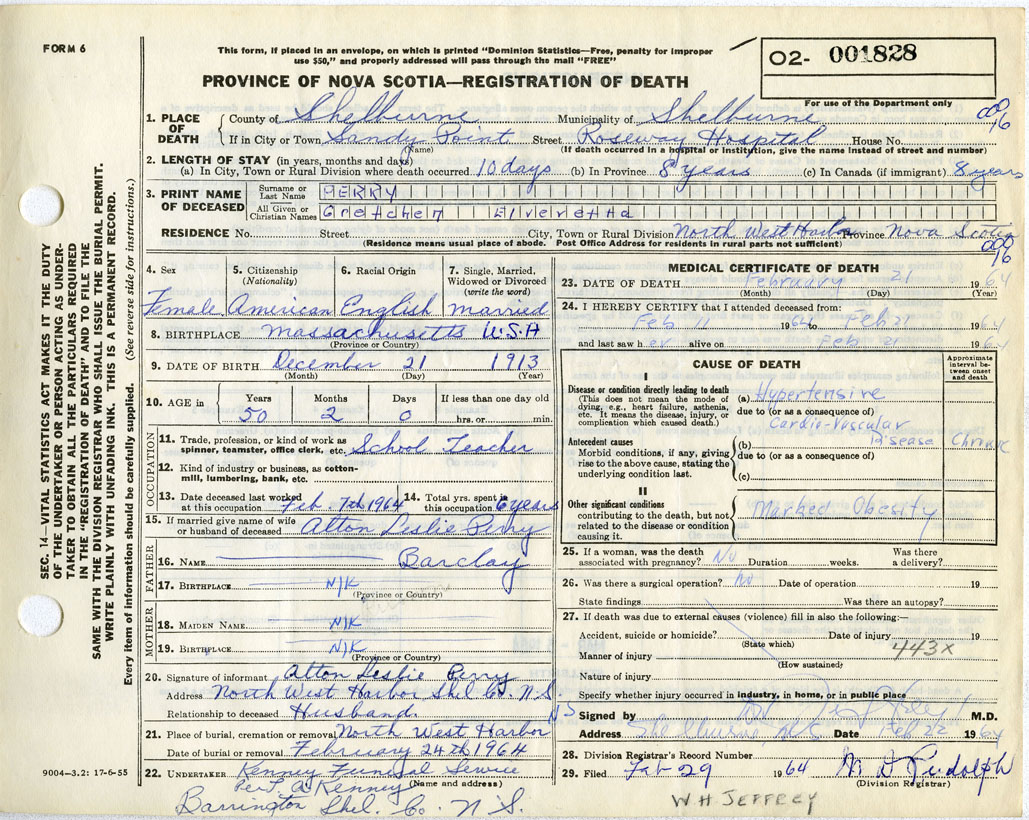 FORM 6
This form, if placed in an envelope, on which is printed "Dominion Statistics—Free, penalty for improper
use $50," and properly addressed will pass through the mail "FREE"
PROVINCE OF NOVA SCOTIA—REGISTRATION OF DEATH
O2- 001828
For use of the Department only
SEC. 14—VITAL STATISTICS ACT MAKES IT THE DUTY
OF THE UNDERTAKER OR PERSON ACTING AS UNDER-
TAKER TO OBTAIN ALL THE PARTICULARS REQUIRED
IN THE "REGISTRATION OF DEATH" AND TO FILE THE
SAME WITH THE DIVISION REGISTRAR WHO SHALL ISSUE THE BURIAL PERMIT.
WRITE PLAINLY WITH UNFADING INK. THIS IS A PERMANENT RECORD.
Every item of information should be carefully supplied. (See reverse side for instructions.)
1. PLACE OF DEATH County of Shelburne Municipality of Shelburne
If in City or Town Sandy Point Street Roseway Hospital House No.
(Name) (If death occurred in a hospital or institution, give the name instead of street and number)
2. LENGTH OF STAY (in years, months and days)
(a) In City, Town or Rural Division where death occurred 10 days (b) In Province 8 years (c) In Canada (if immigrant) 8 years
3. PRINT NAME OF DECEASED Surname or Last Name PERRY
All Given or Christian Names Gretchen Elveretta
RESIDENCE No. Street City, Town or Rural Division North West Harbor Province Nova Scotia
(Residence means usual place of abode. Post Office Address for residents in rural parts not sufficient)
4. Sex Female
5. Citizenship (Nationality) American
6. Racial Origin English
7. Single, Married, Widowed or Divorced (write the word) married
8. BIRTHPLACE Massachusetts U.S.A
(Province or Country)
9. DATE OF BIRTH December 21 1913
(Month) (Day) (Year)
10. AGE in Years 50 Months 2 Days 0 If less than one day old hrs. or min.
OCCUPATION
11. Trade, profession, or kind of work as spinner, teamster, office clerk, etc. School Teacher
12. Kind of industry or business, as cotton-mill, lumbering, bank, etc.
13. Date deceased last worked at this occupation Feb. 7th 1964
14. Total yrs. spent in this occupation 6 years
15. If married give name of wife or husband of deceased Alton Leslie Perry
FATHER
16. NAME Barclay
17. BIRTHPLACE N/K
(Province or Country)
MOTHER
18. MAIDEN NAME N/K
19. BIRTHPLACE N/K
(Province or Country)
20. Signature of informant Alton Leslie Perry
Address North West Harbor Shel. Co. N.S.
Relationship to deceased Husband.
21. Place of burial, cremation or removal North West Harbor NS
Date of burial or removal February 24th 1964
22. UNDERTAKER Kenney Funeral Service
Per F. A Kenney (Name and address)
Barrington Shel. Co. N.S.
9004—3.2: 17-6-55
MEDICAL CERTIFICATE OF DEATH
23. DATE OF DEATH February 21 1964
(Month) (Day) (Year)
24. I HEREBY CERTIFY that I attended deceased from:
Feb 11 1964 to Feb 21 1964
and last saw her alive on Feb 21 1964
CAUSE OF DEATH
Approximate interval between onset and death
I
Disease or condition directly leading to death
(This does not mean the mode of dying, e.g., heart failure, asthenia, etc. It means the disease, injury, or complication which caused death.)
(a) Hypertensive
due to (or as a consequence of)
Cardio-Vascular
Disease Chronic
Antecedent causes
Morbid conditions, if any, giving rise to the above cause, stating the underlying condition last.
(b)
due to (or as a consequence of)
(c)
II
Other significant conditions
contributing to the death, but not related to the disease or condition causing it.
Marked Obesity
25. If a woman, was the death associated with pregnancy? No Duration weeks. Was there a delivery?
26. Was there a surgical operation? No Date of operation 19
State findings Was there an autopsy?
27. If death was due to external causes (violence) fill in also the following:—
Accident, suicide or homicide? Date of injury 19
(State which)
443X
Manner of injury
(How sustained)
Nature of injury
Specify whether injury occurred in industry, in home, or in public place
Signed by M.D.
Address Shelburne, N.S. Date Feb 22 1964
28. Division Registrar's Record Number
29. Filed Feb 29 1964
(Division Registrar)
W H JEFFREY